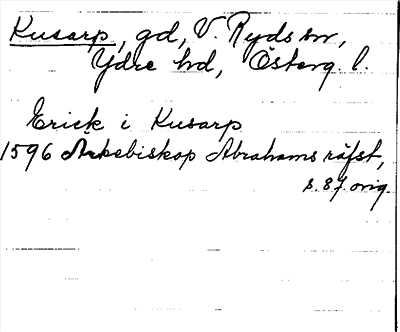 Kusarp, gd, V. Ryds sn,
Ydre hd, Österg. l.
Erick i Kusarp
1596 Ärkebiskop Abrahams räfst,
s. 87 orig.